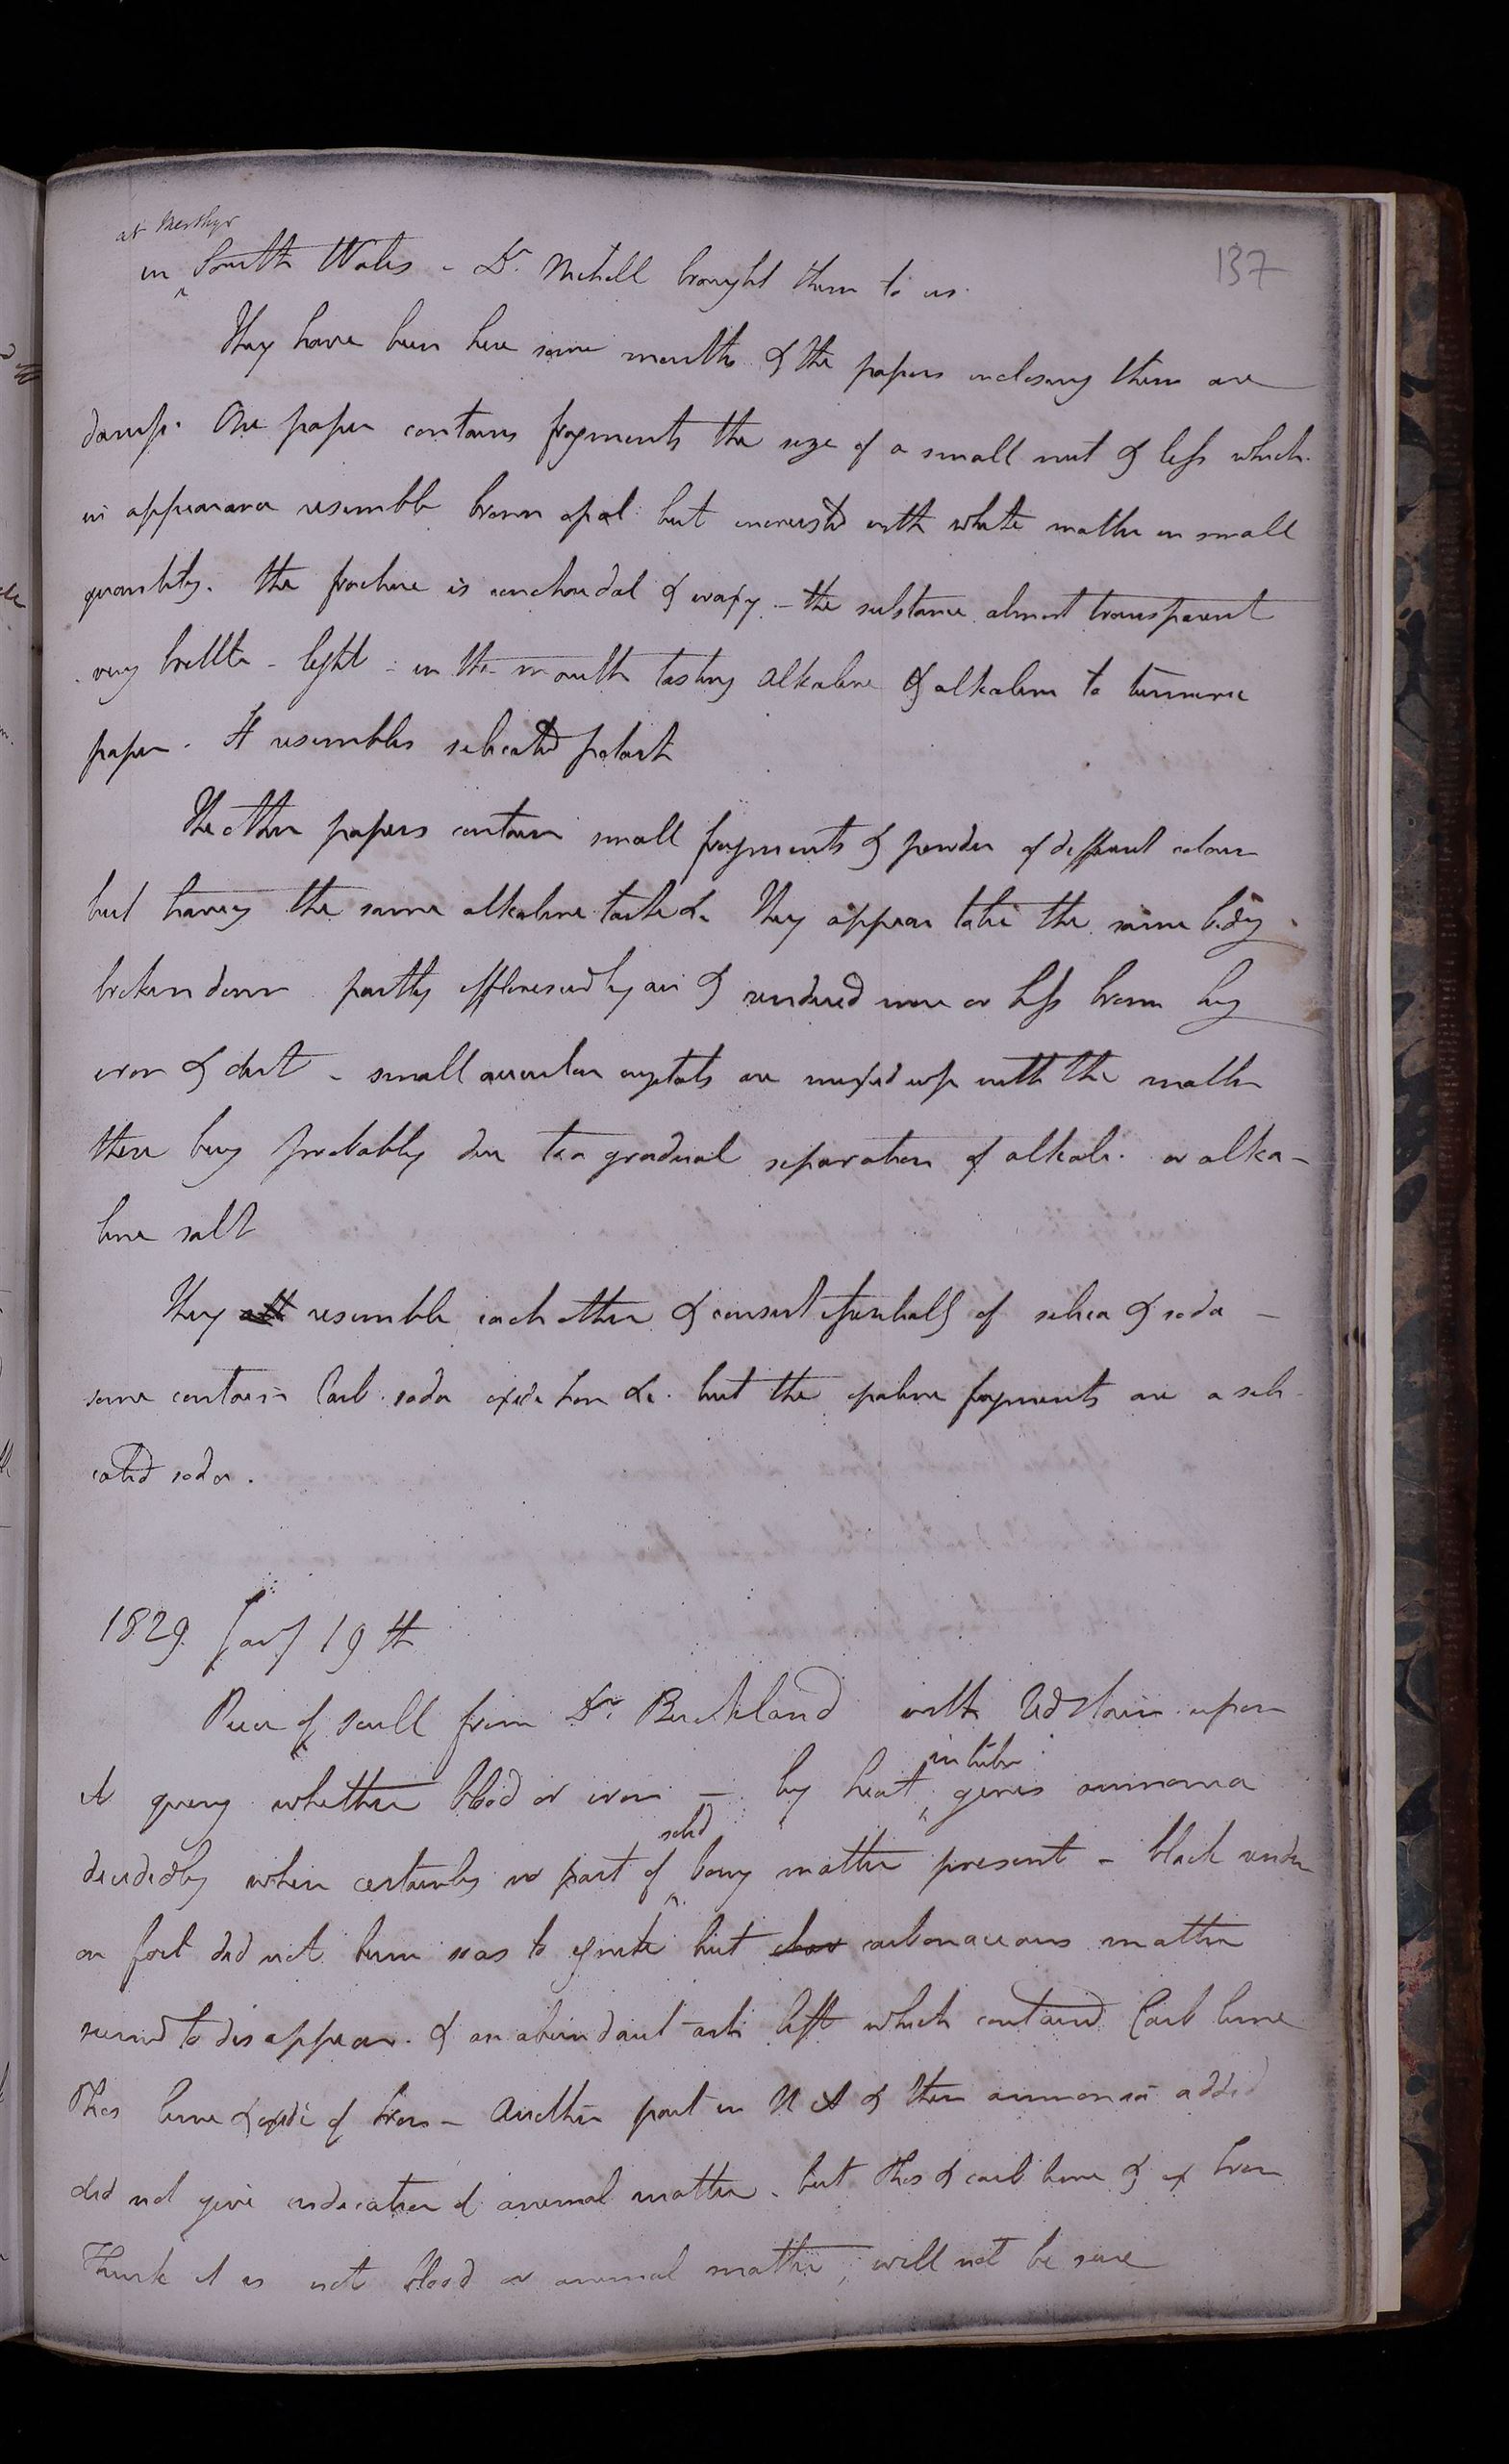 at Merthyr
137
in South Wales - Dr. Mitchell brought them to us.
They have been here some months & the papers inclosing them are
damp. One paper contains fragments the size of a small nut & less which
in appearance resemble brown opal but incrusted with white matter in small
quantity. The fracture is conchoidal & waxy - the substance almost transparent
very brittle - light - in the mouth tasting alkaline & alkaline to turmeric
paper. It resembles silicated potash
The other papers contain small fragments & powder of different colour
but having the same alkaline taste &c. They appear to be the same body
broken down partly effloresced by air & rendered more or less brown by
iron & dirt - small acicular crystals are mixed up with the matter
these being probably due to a gradual separation of alkali or alka-
line salt
They all resemble each other & consist essentially of silica & soda -
some contain Carb. soda oxide Iron &c. but the opaline fragments are a sili-
cated soda.
1829 Jany 19th
Piece of scull from Dr. Buckland with red stain upon
in tube
it query whether blood or iron - by heat gives ammonia
solid
decidedly when certainly no part of bony matter present - black resdu
on foil did not burn so as to ignite but char carbonaceous matter
seemed to disappear. & an abundant ash left which contained Carb lime
Phos lime & oxide of Iron - Another part in N A & then ammonia added
did not give indication of animal matter. but Phos & carb lime & ox Iron
Think it is not blood or animal matter, will not be sure